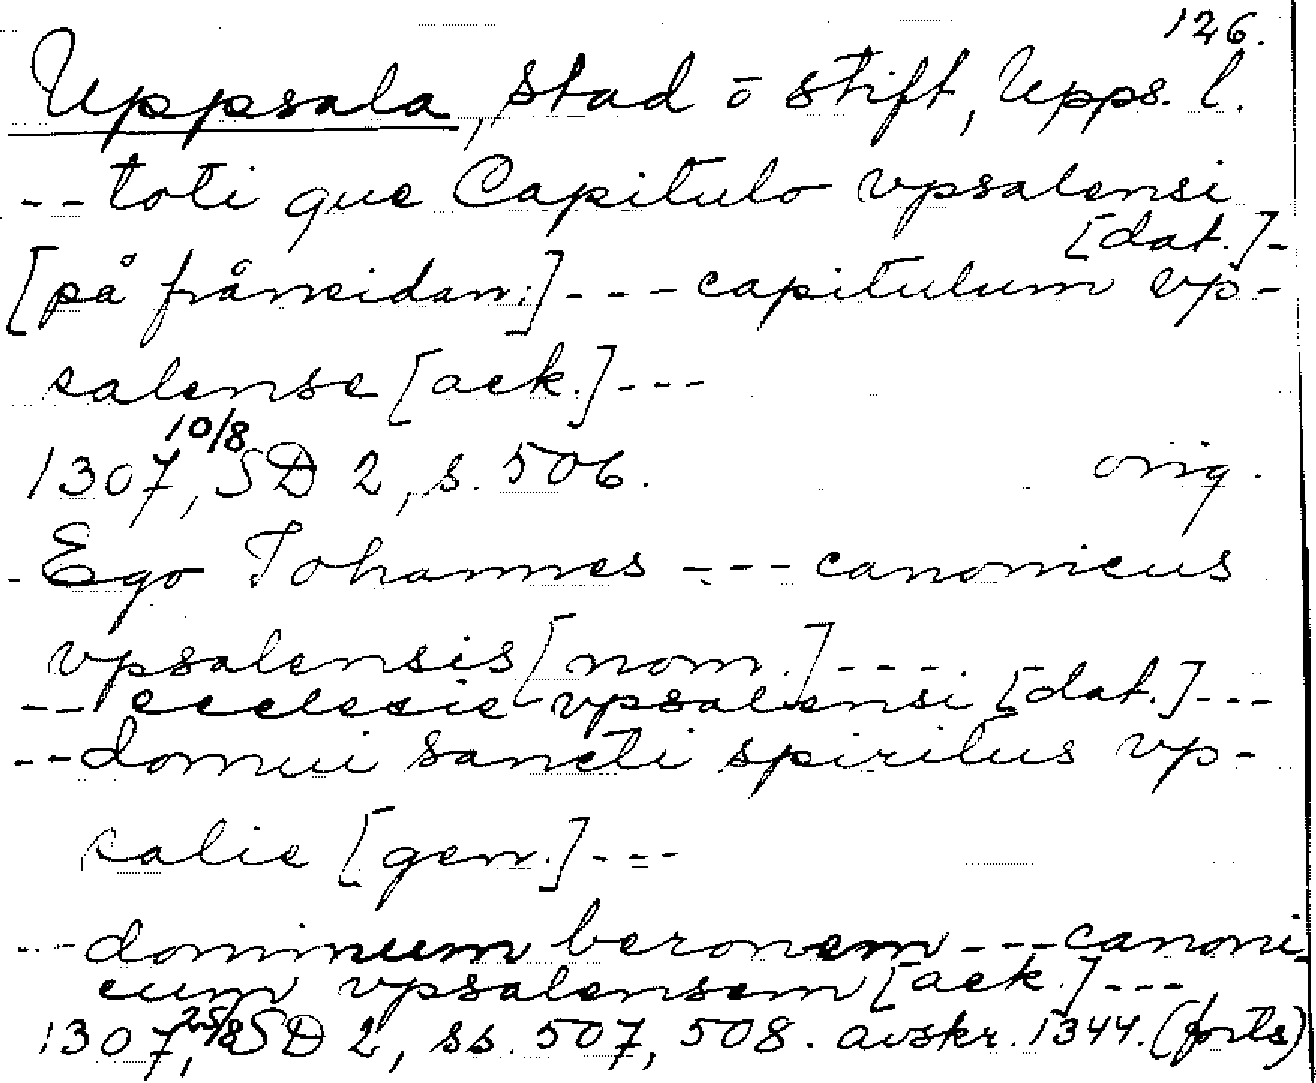 126.
Uppsala, stad o stift, Upps. l.
--toti que Capitulo vpsalensi
[dat.]-
[på frånsidan:]---capitulum vp-
salense [ack.]---
1307, 10/8 SD 2, s. 506. orig.
-Ego Iohannes --- canonicus
vpsalensis [nom.]----
--ecclesie vpsalensi [dat.]---
--domui sancti spiritus vp-
salie [gen.]---
---dominum beronem---canoni-
cum vpsalensem [ack.]---
1307, 25/8 SD 2, ss. 507, 508. avskr. 1344. (forts)